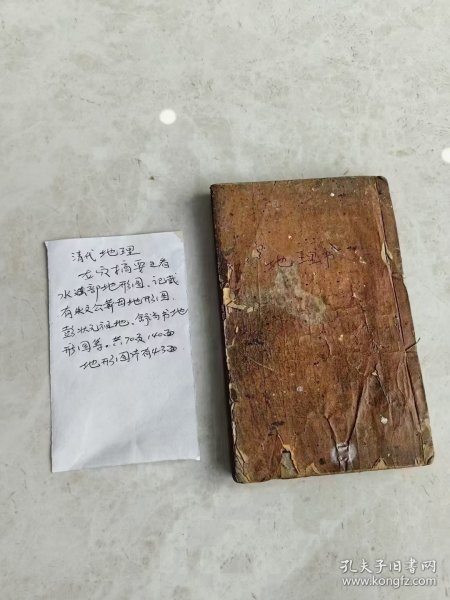 清代地理
古穴摘要上有
水道部地形图.记载
有状文公葬母地形图.
彭状元祖地.
形图等.共70页140面
地形图
43面
"地理书"
孔夫子旧书网
www.kongfz.com